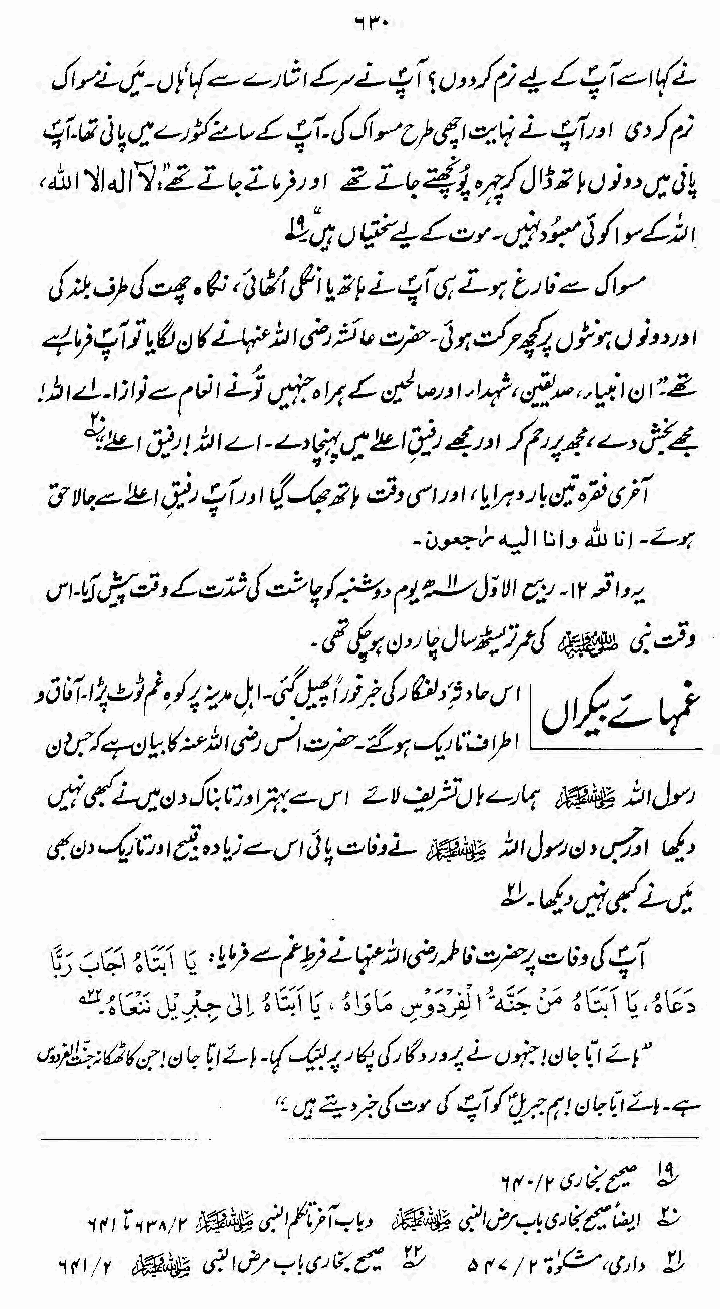 ۶۳۰
نے کہا اسے آپؐ کے لیے نرم کر دوں؟ آپؐ نے سر کے اشارے سے کہا ہاں۔ میں نے مسواک
نرم کر دی اور آپؐ نے نہایت اچھی طرح مسواک کی۔ آپؐ کے سامنے کٹورے میں پانی تھا۔ آپؐ
پانی میں دونوں ہاتھ ڈال کر چہرہ پونچھتے جاتے تھے اور فرماتے جاتے تھے: "لا الہ الا اللہ،
اللہ کے سوا کوئی معبود نہیں۔ موت کے لیے سختیاں ہیں" ۱۹
مسواک سے فارغ ہوتے ہی آپؐ نے ہاتھ یا انگلی اُٹھائی، نگاہ چھت کی طرف بلند کی
اور دونوں ہونٹوں پر کچھ حرکت ہوئی۔ حضرت عائشہ رضی اللہ عنہا نے کان لگایا تو آپؐ فرما رہے
تھے۔ "ان انبیاء، صدیقین، شہداء اور صالحین کے ہمراہ جنہیں تُو نے انعام سے نوازا۔ اے اللہ!
مجھے بخش دے، مجھ پر رحم کر اور مجھے رفیقِ اعلیٰ میں پہنچا دے۔ اے اللہ! رفیق اعلیٰ ۲۰
آخری فقرہ تین بار دہرایا، اور اسی وقت ہاتھ جھک گیا اور آپؐ رفیقِ اعلیٰ سے جا لاحق
ہوئے۔ انا للہ وانا الیہ راجعون۔
یہ واقعہ ۱۲۔ ربیع الاوّل ۱۱ھ یوم دوشنبہ کو چاشت کی شدّت کے وقت پیش آیا۔ اس
وقت نبی ﷺ کی عمر تریسٹھ سال چار دن ہو چکی تھی۔
غمہائے بیکراں
اس حادثۂ دلفگار کی خبر فوراً پھیل گئی۔ اہلِ مدینہ پر کوہ غم ٹوٹ پڑا۔ آفاق و
اطراف تاریک ہو گئے۔ حضرت انس رضی اللہ عنہ کا بیان ہے کہ جس دن
رسول اللہ ﷺ ہمارے ہاں تشریف لائے اس سے بہتر اور تابناک دن میں نے کبھی نہیں
دیکھا اور جس دن رسول اللہ ﷺ نے وفات پائی اس سے زیادہ قبیح اور تاریک دن بھی
میں نے کبھی نہیں دیکھا۔ ۲۱
آپؐ کی وفات پر حضرت فاطمہ رضی اللہ عنہا نے فرطِ غم سے فرمایا: يَا اَبَتَاهُ اَجَابَ رَبًّا
دَعَاهُ، يَا اَبَتَاهُ مَنْ جَنَّةُ الْفِرْدَوْسِ مَاوَاهُ، يَا اَبَتَاهُ اِلىٰ جِبْرِيْل نَنْعَاهُ۔ ۲۲
"ہائے ابّا جان! جنہوں نے پروردگار کی پکار پر لبّیک کہا۔ ہائے ابّا جان! جن کا ٹھکانہ جنّت الفردوس
ہے۔ ہائے ابّا جان! ہم جبریلؑ کو آپؐ کی موت کی خبر دیتے ہیں۔"
۱۹ صحیح بخاری ۲/۶۴۰
۲۰ ایضاً صحیح بخاری باب مرض النبی ﷺ و باب آخر ما تکلم النبی ﷺ ۲/۶۳۸ تا ۶۴۱
۲۱ دارمی، مشکوٰۃ ۲/۵۴۷ ۲۲ صحیح بخاری باب مرض النبی ﷺ ۲/۶۴۱